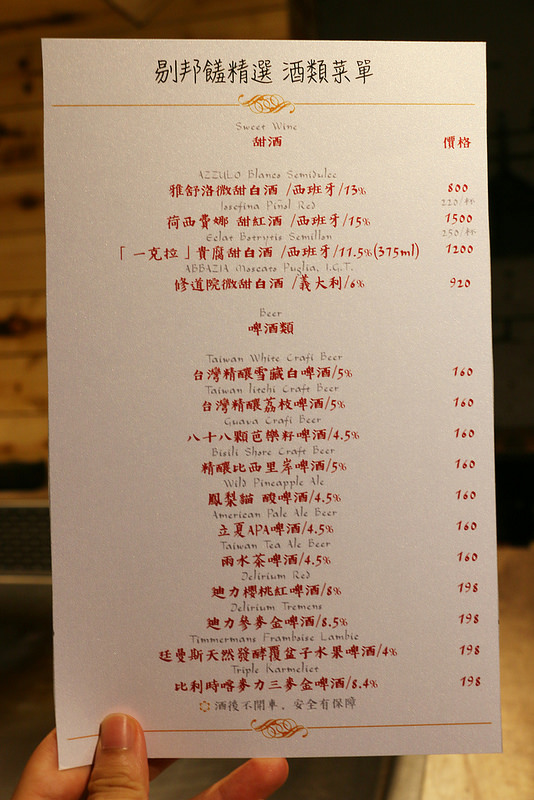 剔邦饈精選 酒類菜單
Sweet Wine
甜酒 價格
AZZULO Blanco Semidulce
雅舒洛微甜白酒 /西班牙/13% 800
Josefina Piñol Red 220/杯
荷西費娜 甜紅酒 /西班牙/15% 1500
Eclat Botrytis Semillon 250/杯
「一克拉」貴腐甜白酒 /西班牙/11.5%(375ml) 1200
ABBAZIA Moscato Puglia, I.G.T.
修道院微甜白酒 /義大利/6% 920
Beer
啤酒類
Taiwan White Crafi Beer
台灣精釀雪藏白啤酒/5% 160
Taiwan litchi Craft Beer
台灣精釀荔枝啤酒/5% 160
Guava Crafi Beer
八十八顆芭樂籽啤酒/4.5% 160
Bisili Shore Craft Beer
精釀比西里岸啤酒/5% 160
Wild Pineapple Ale
鳳梨貓 酸啤酒/4.5% 160
American Pale Ale Beer
立夏APA啤酒/4.5% 160
Taiwan Tea Ale Beer
雨水茶啤酒/4.5% 160
Delirium Red
迪力櫻桃紅啤酒/8% 198
Delirium Tremens
迪力參麥金啤酒/8.5% 198
Timmermans Framboise Lambic
廷曼斯天然發酵覆盆子水果啤酒/4% 198
Triple Karmeliet
比利時喀麥力三麥金啤酒/8.4% 198
酒後不開車，安全有保障